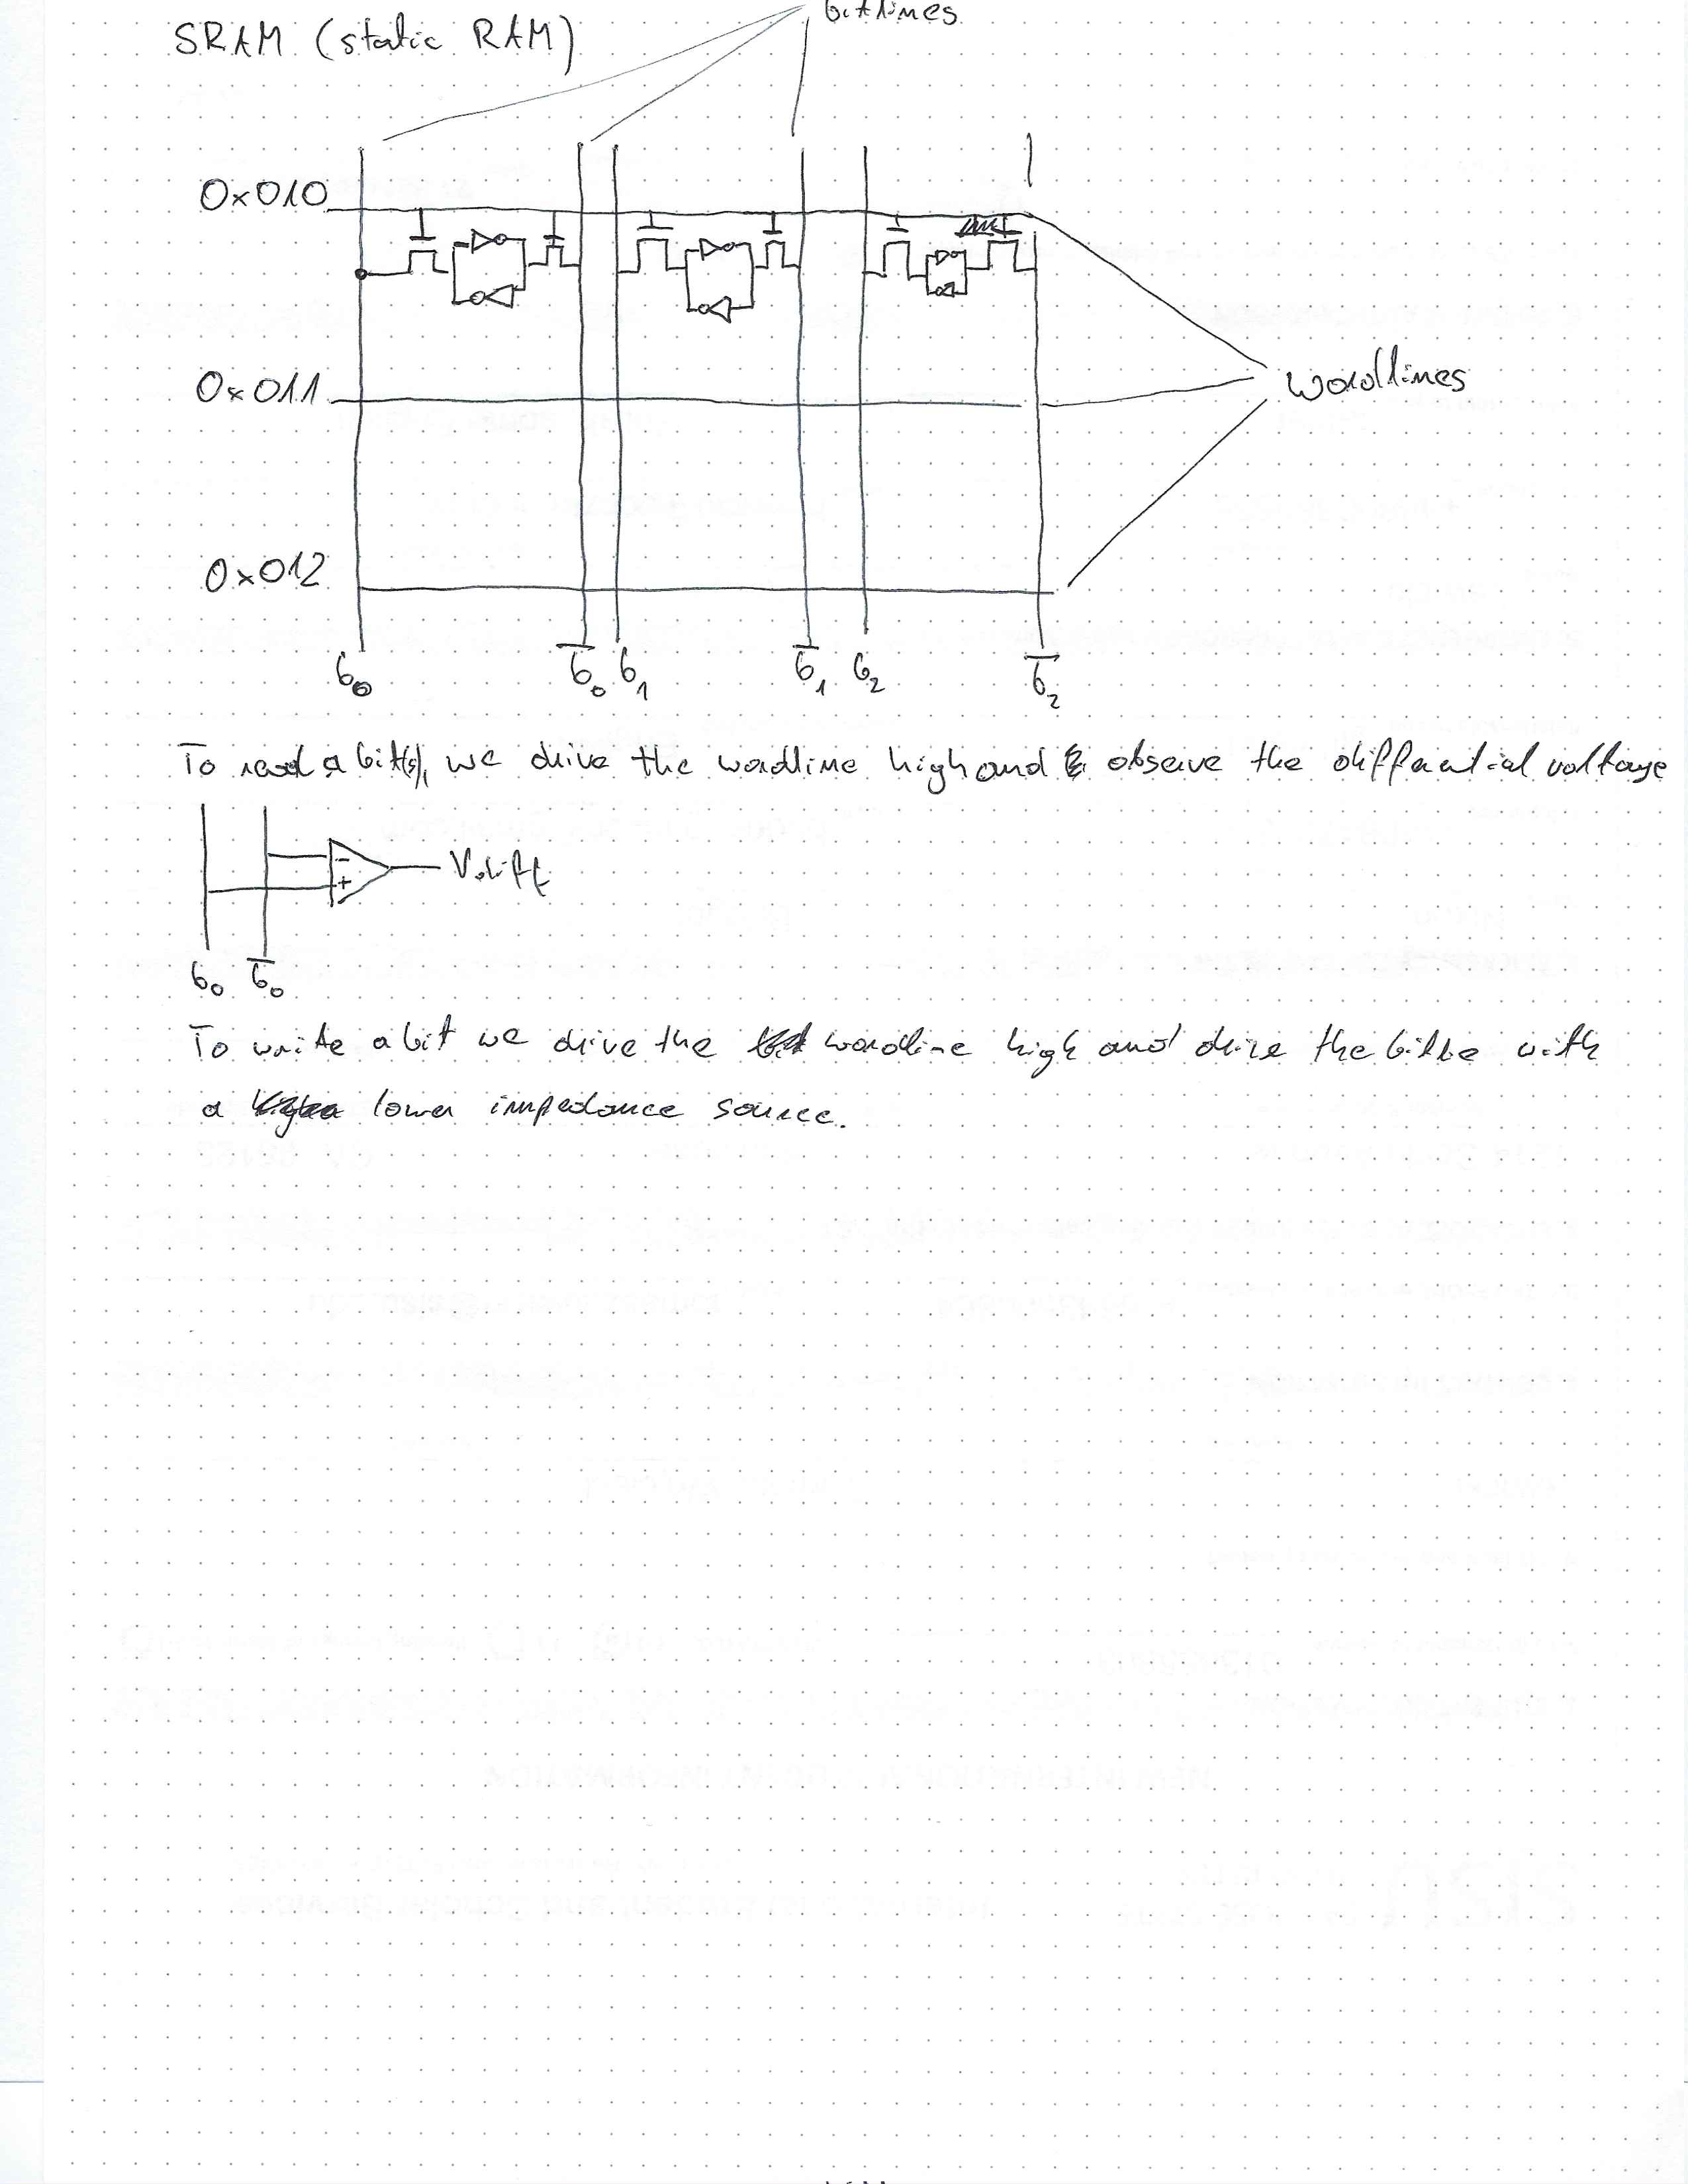 bitlines
SRAM (static RAM)
0x010
0x011
wordlines
0x012
b0 b̅0 b1 b̅1 b2 b̅2
To read a bit(s), we drive the wordline high and observe the differential voltage
- Vdiff
+
b0 b̅0
To write a bit we drive the wordline high and drive the bitline with
a lower impedance source.